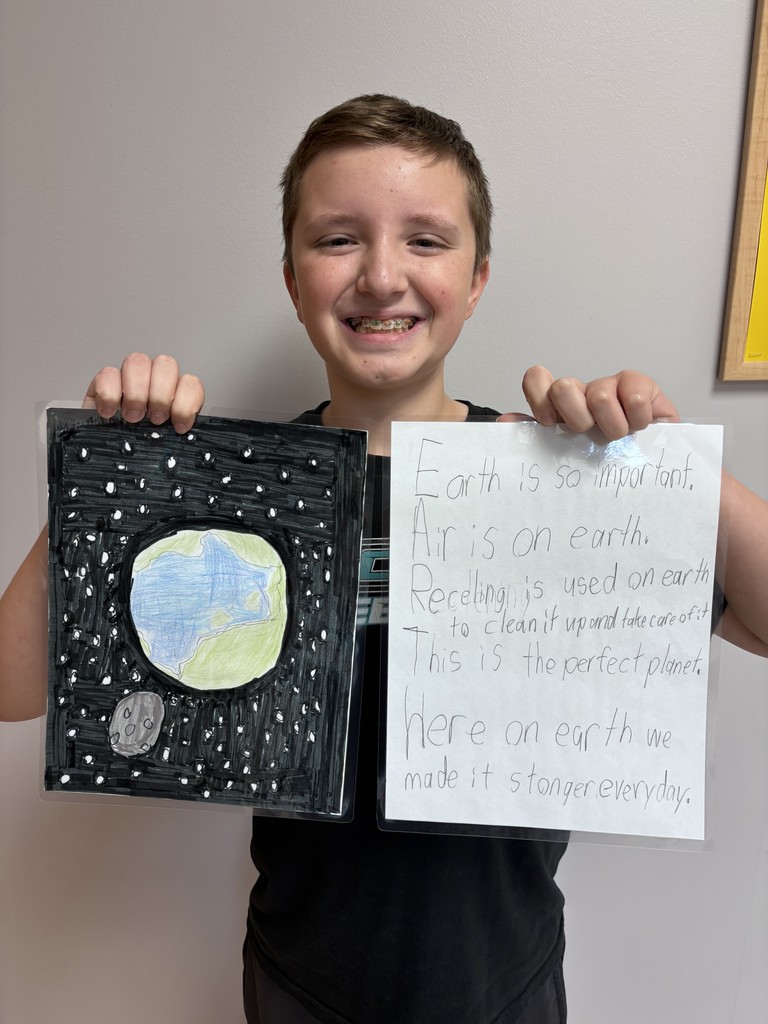 Earth is so important.
Air is on earth.
Receling is used on earth
to clean it up and take care of it
This is the perfect planet.
Here on earth we
made it stonger everyday.